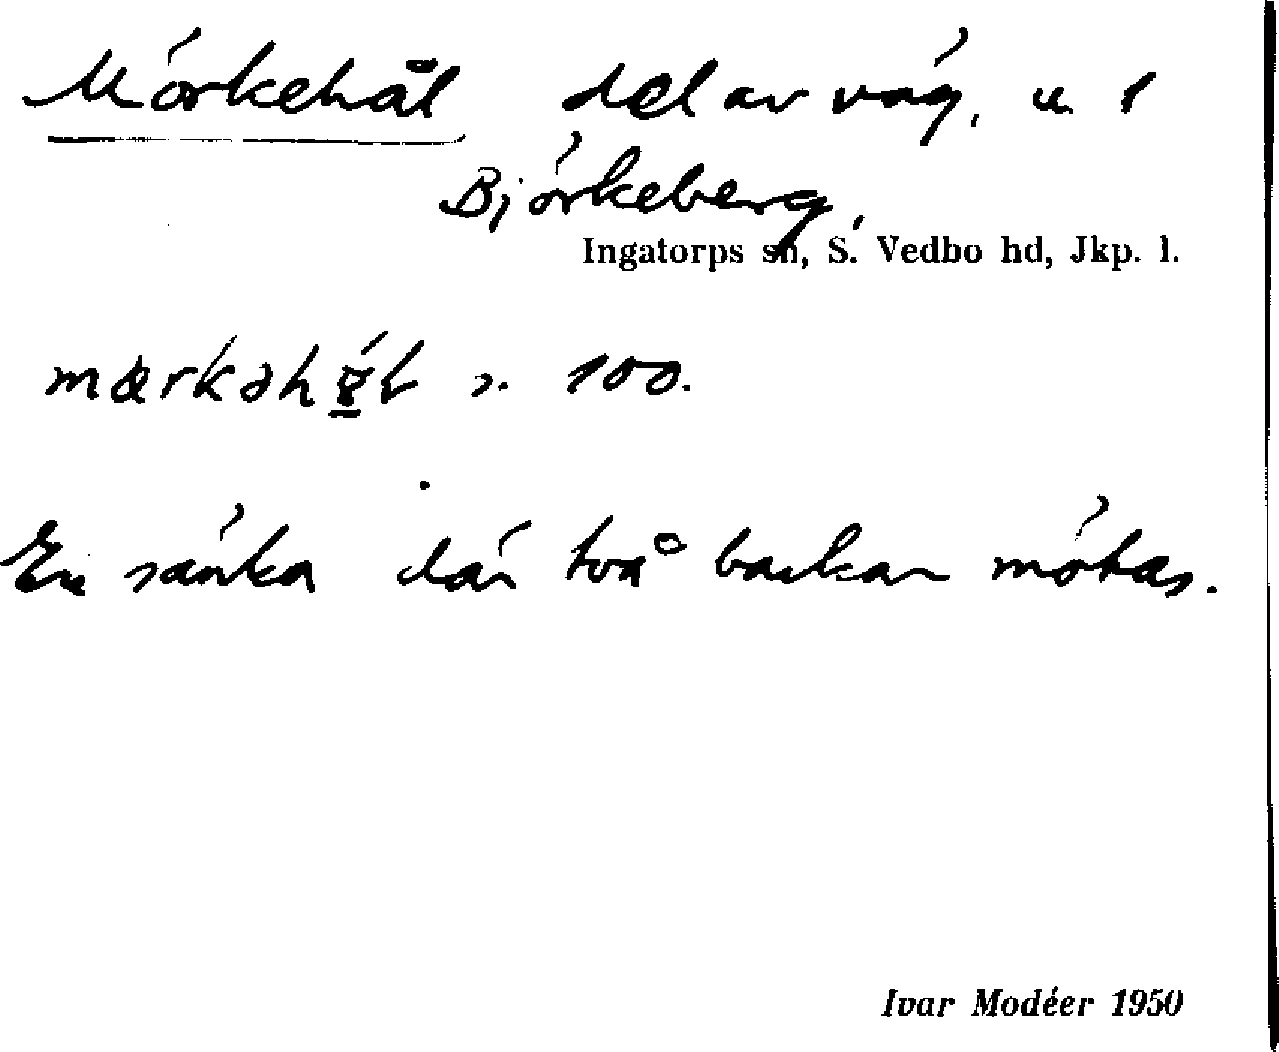 Mörkehål del av väg, u. 1
Björkeberg,
Ingatorps sn, S. Vedbo hd, Jkp. l.
mærkəh s. 100.
En sänka där två backar mötas.
Ivar Modéer 1950